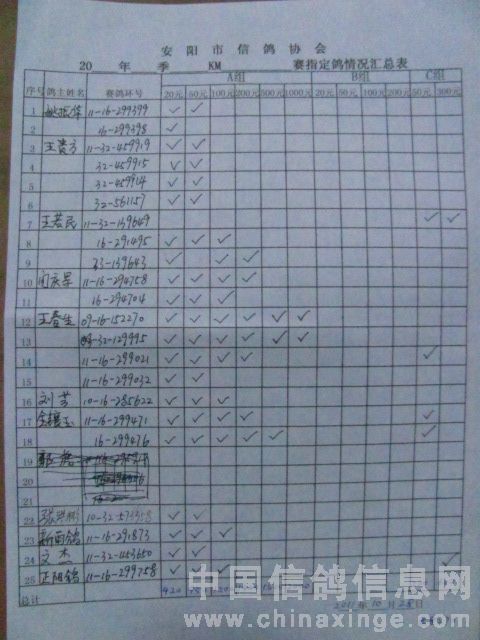 安阳市信鸽协会
20 年 季 KM 赛指定鸽情况汇总表
序号 鸽主姓名 赛鸽环号 A组 B组 C组
20元 50元 100元 200元 500元 1000元 20元 50元 100元 200元 500元 1000元 50元 300元
1 11-16-299399 ✓ ✓
2 16-299398 ✓
3 王贵方 11-32-459919 ✓ ✓
4 32-459915 ✓ ✓
5 32-459914 ✓ ✓
6 32-561157 ✓ ✓
7 王若民 11-32-139649 ✓ ✓
8 16-291495 ✓ ✓ ✓
9 33-139643 ✓ ✓ ✓
10 闫庆军 11-16-294758 ✓ ✓ ✓ ✓
11 16-294704 ✓ ✓ ✓
12 王春生 09-16-152270 ✓ ✓ ✓ ✓ ✓ ✓
13 32-129995 ✓ ✓ ✓ ✓ ✓ ✓
14 11-16-299021 ✓ ✓ ✓ ✓ ✓
15 11-16-299032 ✓ ✓
16 刘芳 10-16-285622 ✓ ✓ ✓
17 11-16-299471 ✓ ✓ ✓ ✓ ✓
18 16-299476 ✓ ✓ ✓ ✓ ✓ ✓
19
20
21
22 10-32-573358 ✓ ✓
23 新南鸽 11-16-291873 ✓ ✓ ✓
24 文杰 11-32-453650 ✓ ✓
25 正阳鸽 11-16-299758 ✓ ✓ ✓ ✓ ✓
总计 420
2011年10月28日
中国信鸽信息网
www.chinaxinge.com